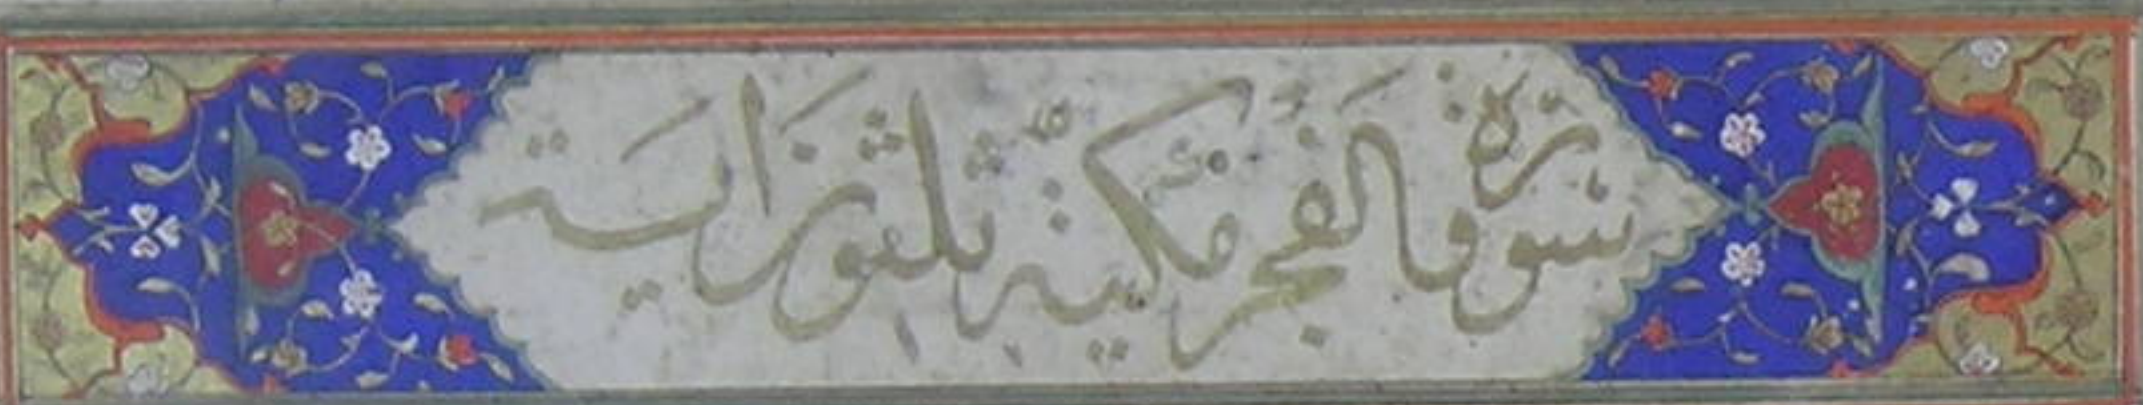 سورة والفجر مكية ثلثون اية